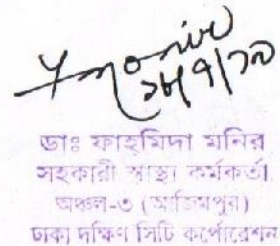 ১৮/৭/১৯
ডাঃ ফাহমিদা মনির
সহকারী স্বাস্থ্য কর্মকর্তা
অঞ্চল-৩ (আজিমপুর)
ঢাকা দক্ষিণ সিটি কর্পোরেশন